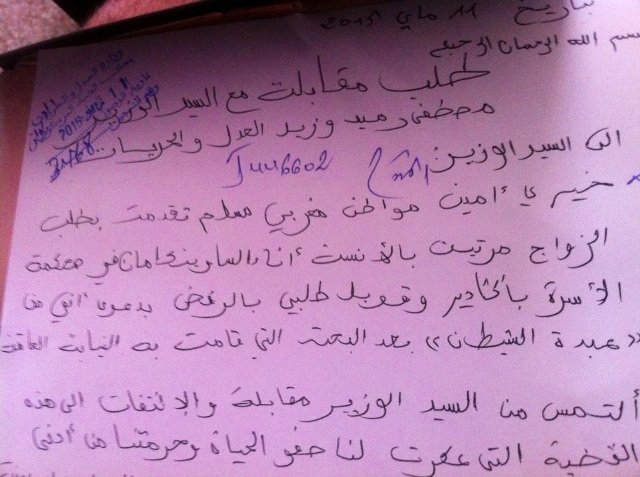 بتاريخ 11 ماي 2015
بسم الله الرحمان الرحيم
طلب مقابلة مع السيد الوزير
مصطفى رميد وزير العدل والحريات
الى السيد الوزير
J446602
خيري أمين مواطن مغربي مسلم تقدمت بطلب
الزواج مرتين بالآنسة في محكمة
الأسرة بأكادير وقوبل طلبي بالرفض بدعوى أنني من
«عبدة الشيطان» بعد البحث التي قامت به النيابة العامة
ألتمس من السيد الوزير مقابلة والإلتفات الى هذه
القضية التي عكرت لنا صفو الحياة وحرمتنا من أدنى